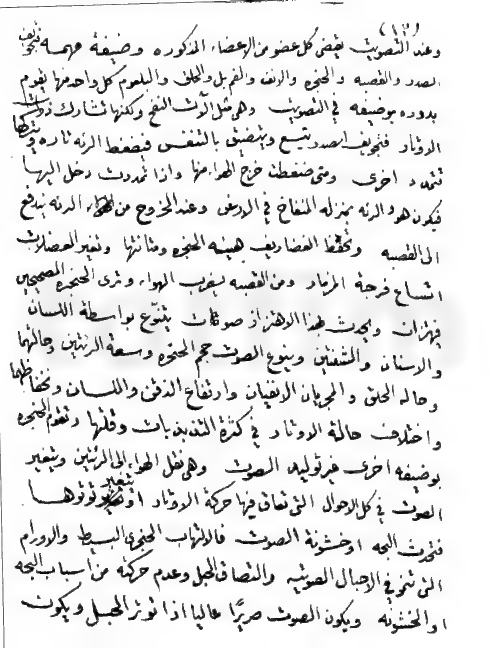 (١٣)
وعند التصويت يقضى كل عضو من الاعضاء المذكوره وضيفة مهمه فتجويف
الصدر والقصبه والحنجره والانف والفم بل والحلق والبلعوم كل واحد منها يقوم
بدوره بوضيفه في التصويت وهى مثل آلات النفخ ولكنها تشارك ذوات
الاوتار فتجويف الصدر يتسع ويتضيق بالتنفس فيضغط الرئه تاره ويتركها
تتمدد اخرى ومتى ضغطت خرج الهواء منها واذا تمددت دخل اليها
فيكون هو والرئه بمنزله المنفاخ في الارغن وعند الخروج من الرئه يندفع
الى القصبه وتحفظ الغضاريف هيئه الحنجره ومتانتها وتغير العضلات
اتساع فرجة المزمار ومن القصبه يضرب الهواء وترى الحنجره الصحيحين
فيهتزان ويحدث بهذا الاهتزاز صوتات يتنوع بواسطة اللسان
والاسنان والشفتين وينوع الصوت حجم الحنجره وسعة الرئتين وحالتهما
وحاله الحلق والمجريان الانفيان وارتفاع الذقن واللسان وانخفاظهما
واختلاف حالة الاوتار في كثرة التذبذبات وقلتها وتقوم الحنجره
بوضيفه اخرى غير توليد الصوت وهى نقل الهواء الى الرئتين ويتغير
الصوت في كل الاحوال التى تعاق فيها حركة الاوتار او يتغير توترها
فتحدث البحه او خشونة الصوت فالالتهاب الحنجرى البسيط والاورام
التى تنمو في الاحبال الصوتيه والتصاق الحبل وعدم حركته من اسباب البحه
او الخشونه ويكون الصوت صريرًا عاليا اذا توتر الحبل ويكون